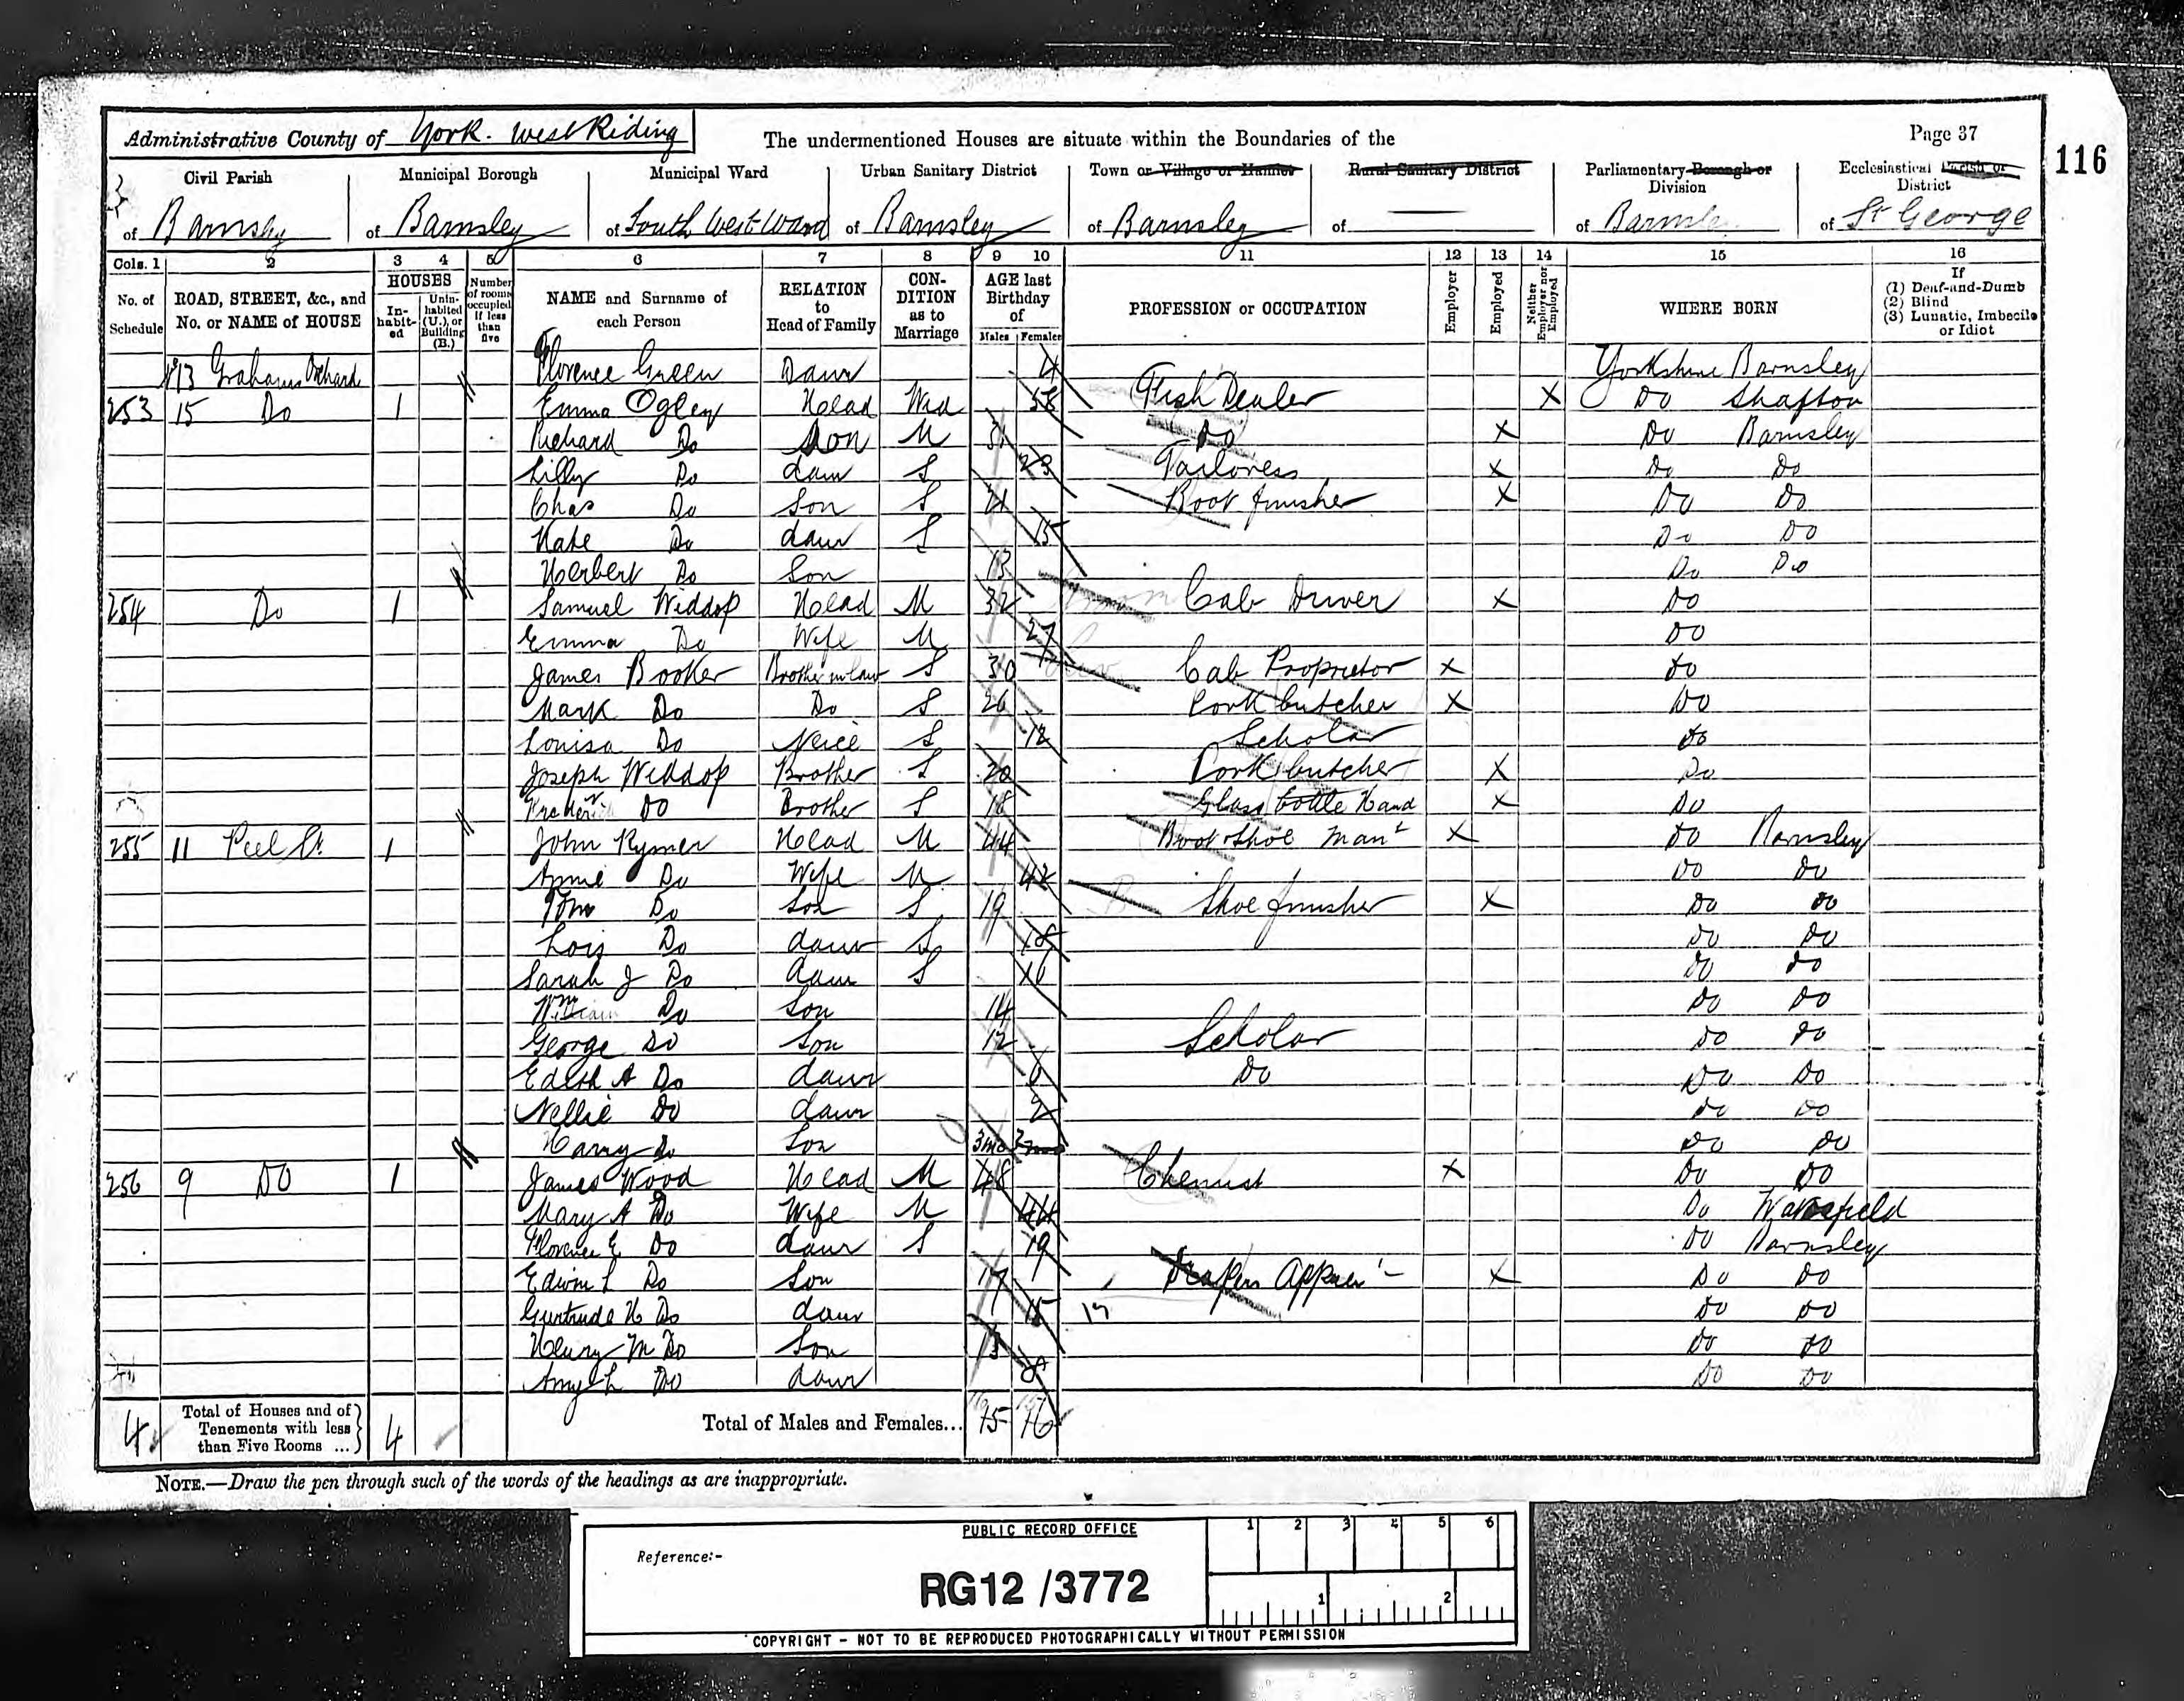 Administrative County of York. West Riding
The undermentioned Houses are situate within the Boundaries of the
Page 37
116
Civil Parish of Barnsley
Municipal Borough of Barnsley
Municipal Ward of South West Ward
Urban Sanitary District of Barnsley
Town or Village or Hamlet of Barnsley
Rural Sanitary District of —
Parliamentary Borough or Division of Barnsley
Ecclesiastical Parish or District of St George
Cols. 1 2 3 4 5 6 7 8 9 10 11 12 13 14 15 16
No. of Schedule
ROAD, STREET, &c., and No. or NAME of HOUSE
HOUSES
In-habit-ed
Unin-habited (U.), or Building (B.)
Number of rooms occupied if less than five
NAME and Surname of each Person
RELATION to Head of Family
CON-DITION as to Marriage
AGE last Birthday of
Males Females
PROFESSION or OCCUPATION
Employer
Employed
Neither Employer nor Employed
WHERE BORN
If
(1) Deaf-and-Dumb
(2) Blind
(3) Lunatic, Imbecile or Idiot
13 Grahams Orchard Florence Green Daur 4 Yorkshire Barnsley
253 15 Do 1 Emma Ogley Head Wid 58 Fish Dealer X Do Shafton
Richard Do Son M Do X Do Barnsley
Lilly Do daur S 23 Tailoress X Do Do
Chas Do Son S 21 Boot finisher X Do Do
Kate Do daur S 15 Do Do
Herbert Do Son 13 Do Do
254 Do 1 Samuel Widdop Head M 32 Cab Driver X Do
Emma Do Wife M 27 Do
James Booker Brother in law S 30 Cab Proprietor X Do
Mark Do Do S 26 Pork butcher X Do
Louisa Do Neice S 12 Scholar Do
Joseph Widdop Brother S 20 Pork butcher X Do
Do Brother S 18 Glass bottle Hand X Do
255 11 Peel St. 1 John Rymer Head M 44 Boot & Shoe Man X Do Barnsley
Annie Do Wife M 42 Do Do
Tom Do Son S 19 Shoe finisher X Do Do
Lois Do daur S 18 Do Do
Sarah J Do daur S 16 Do Do
Wm Do Son 14 Do Do
George Do Son 12 Scholar Do Do
Edith A Do daur 6 Do Do Do
Nellie Do daur 2 Do Do
Harry Do Son 3mo Do Do
256 9 Do 1 James Wood Head M 48 Chemist X Do Do
Mary A Do Wife M 44 Do Wakefield
Florence E Do daur S 19 Do Barnsley
Edwin L Do Son 17 Drapers Appren X Do Do
Gertrude H Do daur 15 17 Do Do
Henry M Do Son 13 Do Do
Amy L Do daur 8 Do Do
4 Total of Houses and of Tenements with less than Five Rooms ... 4
Total of Males and Females... 15 16
NOTE.—Draw the pen through such of the words of the headings as are inappropriate.
PUBLIC RECORD OFFICE
1 2 3 4 5 6
Reference:-
RG12 /3772
1 2
COPYRIGHT - NOT TO BE REPRODUCED PHOTOGRAPHICALLY WITHOUT PERMISSION